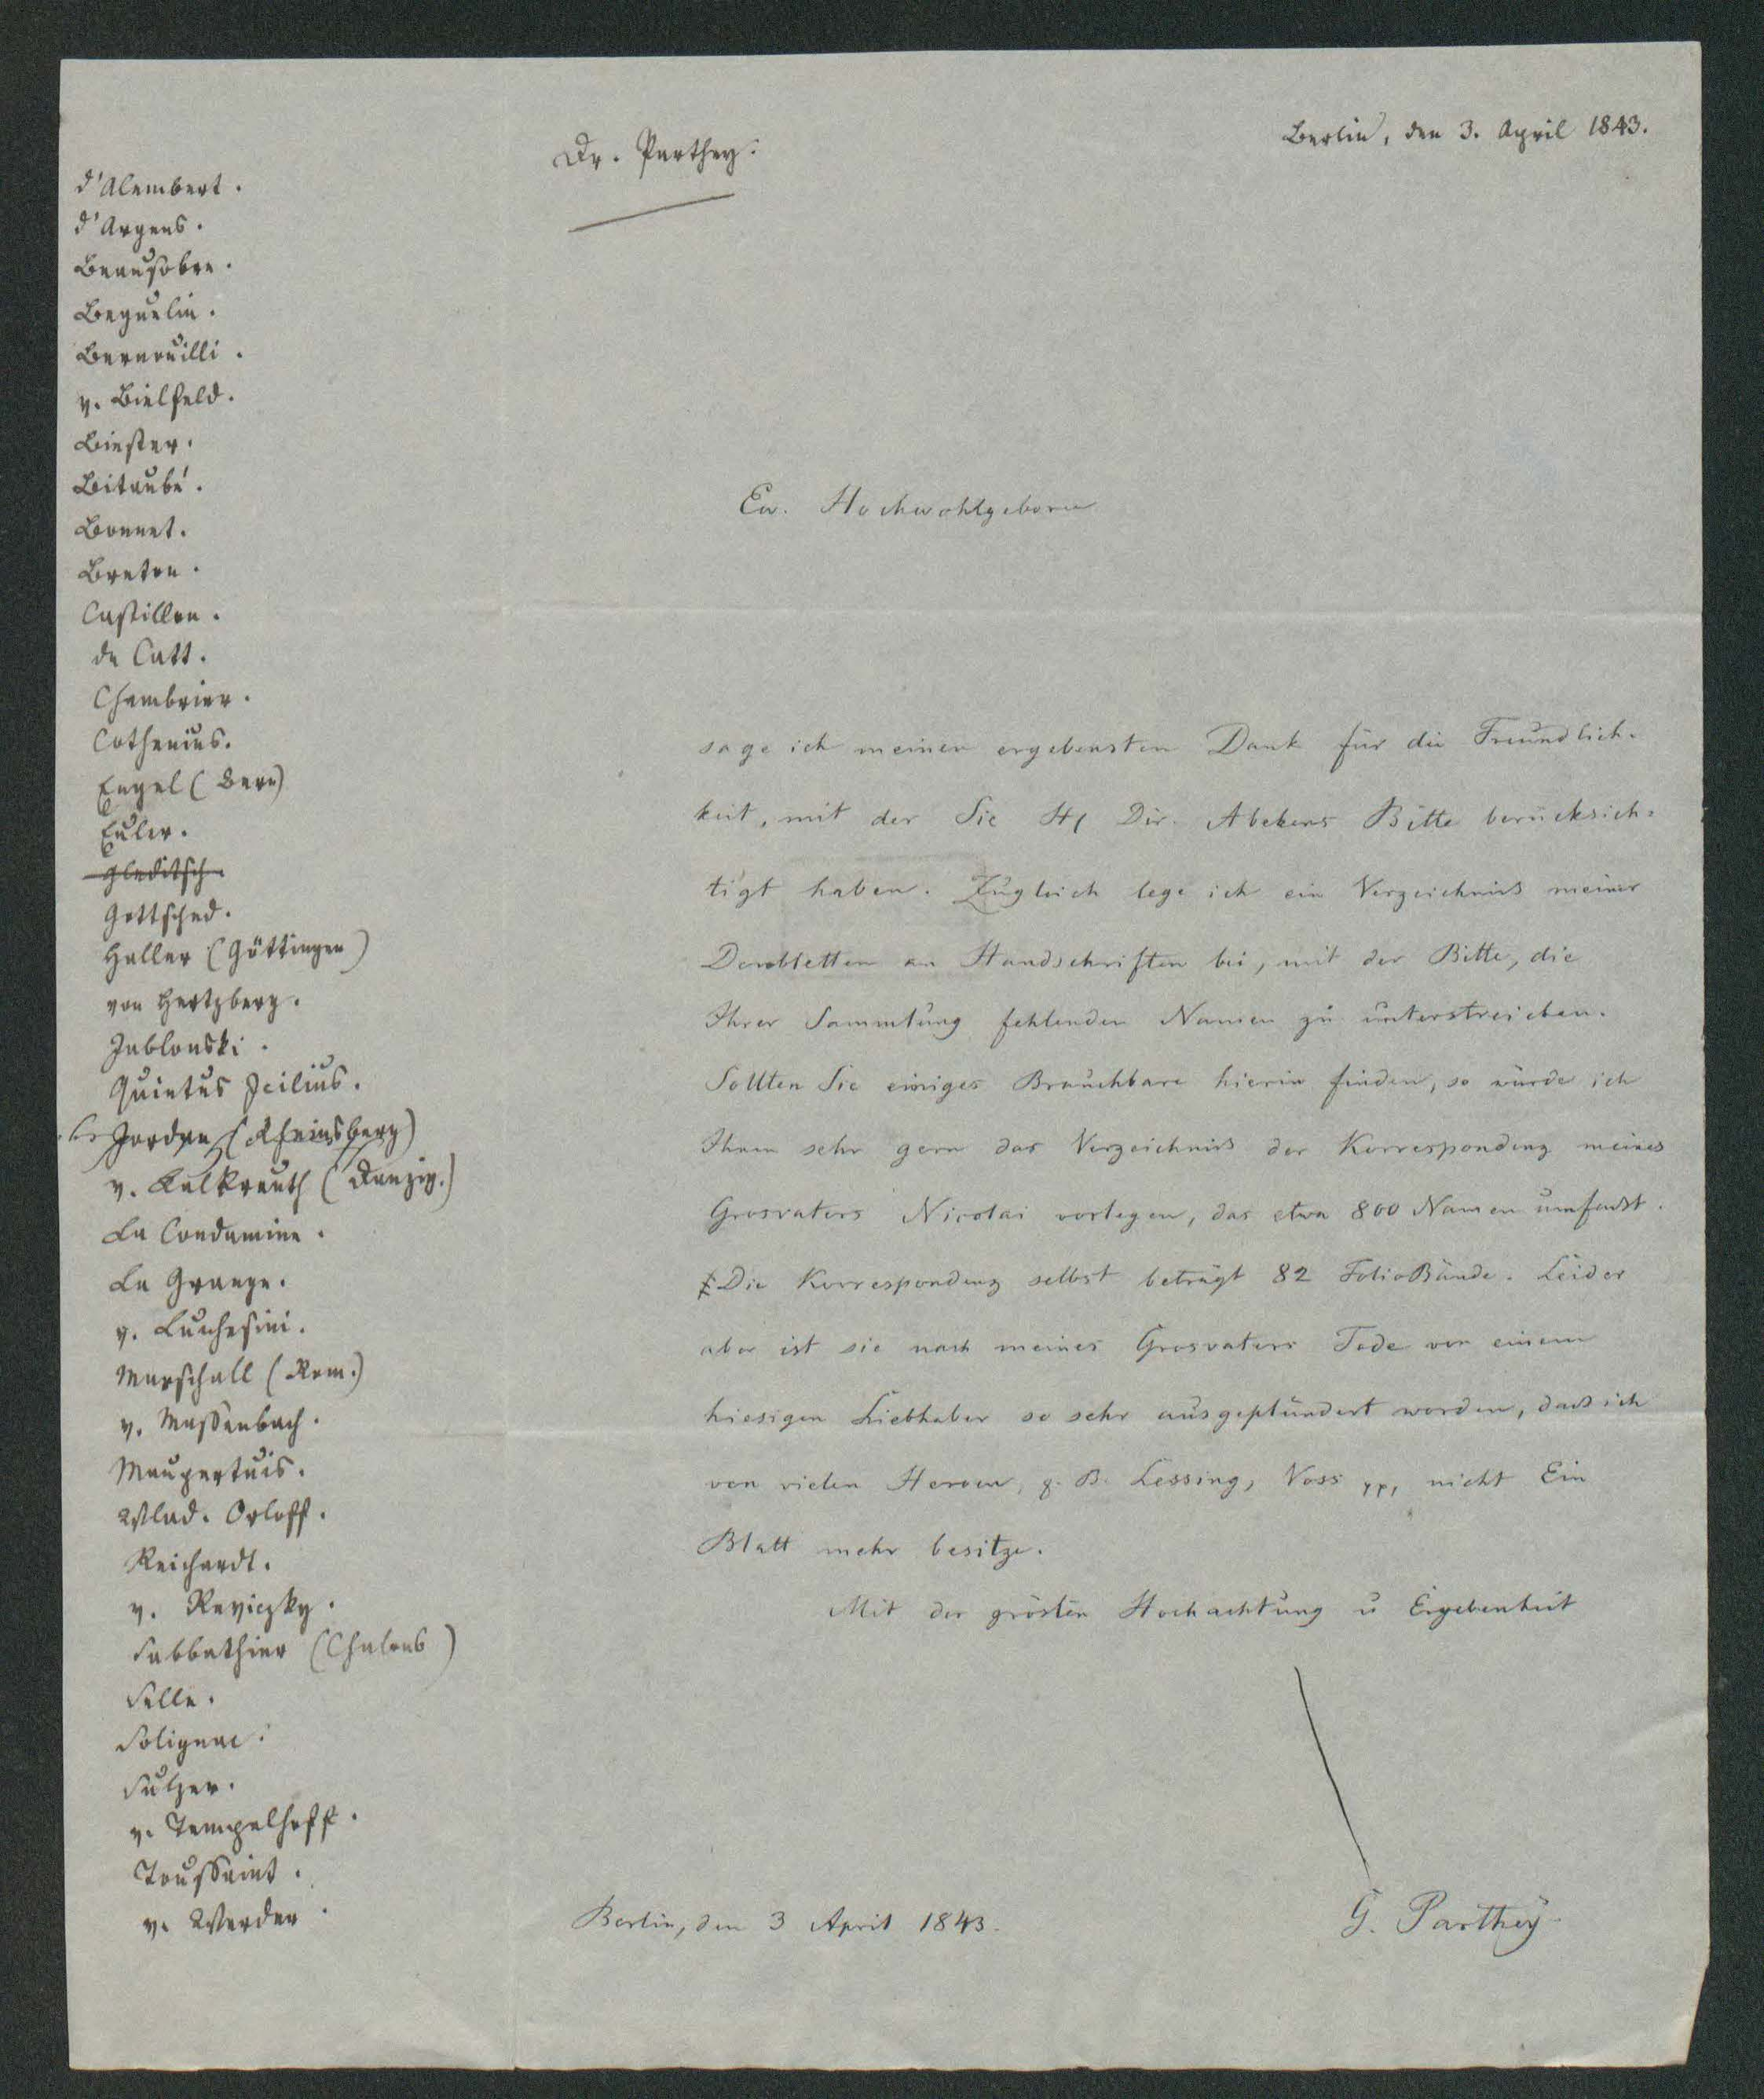 Dr. Parthey.
Berlin, den 3. April 1843.
d'Alembert.
d'Argens.
Beausobre.
Beguelin.
Bernouilli.
v. Bielfeld.
Biester.
Bitaubé.
Bonnet.
Breton.
Castillon.
de Catt.
Chambrier.
Cothenius.
Engel (Bern)
Euler.
Gleditsch
Gottsched.
Haller (Göttingen)
von Hertzberg.
Jablonski.
Quintus Icilius.
Jordan (Rheinsberg)
v. Kalkreuth (Danzig.)
La Condamine.
La Grange.
v. Luchesini.
Marschall (Rom.)
v. Massenbach.
Maupertuis.
Wlad. Orloff.
Reichardt.
v. Reviczky.
Sabbathier (Chalons)
Selle.
Solignac.
Sulzer.
v. Tempelhoff.
Toussaint.
v. Werder.
Ew. Hochwohlgeboren
sage ich meinen ergebensten Dank für die Freundlich-
keit, mit der Sie H Dir. Abekens Bitte berücksich-
tigt haben. Zugleich lege ich ein Verzeichniß meiner
Doubletten an Handschriften bei, mit der Bitte, die
Ihrer Sammlung fehlenden Namen zu unterstreichen.
Sollten Sie einiges Brauchbare hierin finden, so würde ich
Ihnen sehr gern das Verzeichniß der Korrespondenz meines
Grosvaters Nicolai vorlegen, das etwa 800 Namen umfaßt.
Die Korrespondenz selbst beträgt 82 FolioBände. Leider
aber ist sie nach meines Grosvaters Tode von einem
hiesigen Liebhaber so sehr ausgeplündert worden, daß ich
von vielen Heroen, z. B. Lessing, Voss pp, nicht Ein
Blatt mehr besitze.
Mit der grösten Hochachtung u Ergebenheit
G. Parthey
Berlin, den 3 April 1843.